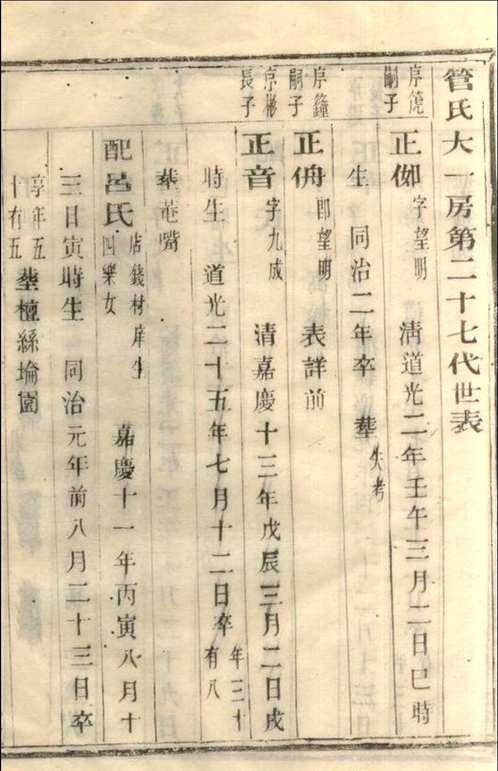 管氏大一房第二十七代世表
序箎嗣子
正㑚 字望明 清道光二年壬午三月二日巳時
生 同治二年卒 葬失考
序鐘嗣子
正侜 即望明 表詳前
序彬長子
正音 字九成 清嘉慶十三年戊辰三月二日戌
時生 道光二十五年七月十二日卒 年三十有八
葬菴嘴
配呂氏 店錢材庠生四樂女 嘉慶十一年丙寅八月十
三日寅時生 同治元年前八月二十三日卒
享年五十有五 葬檀絲埨園